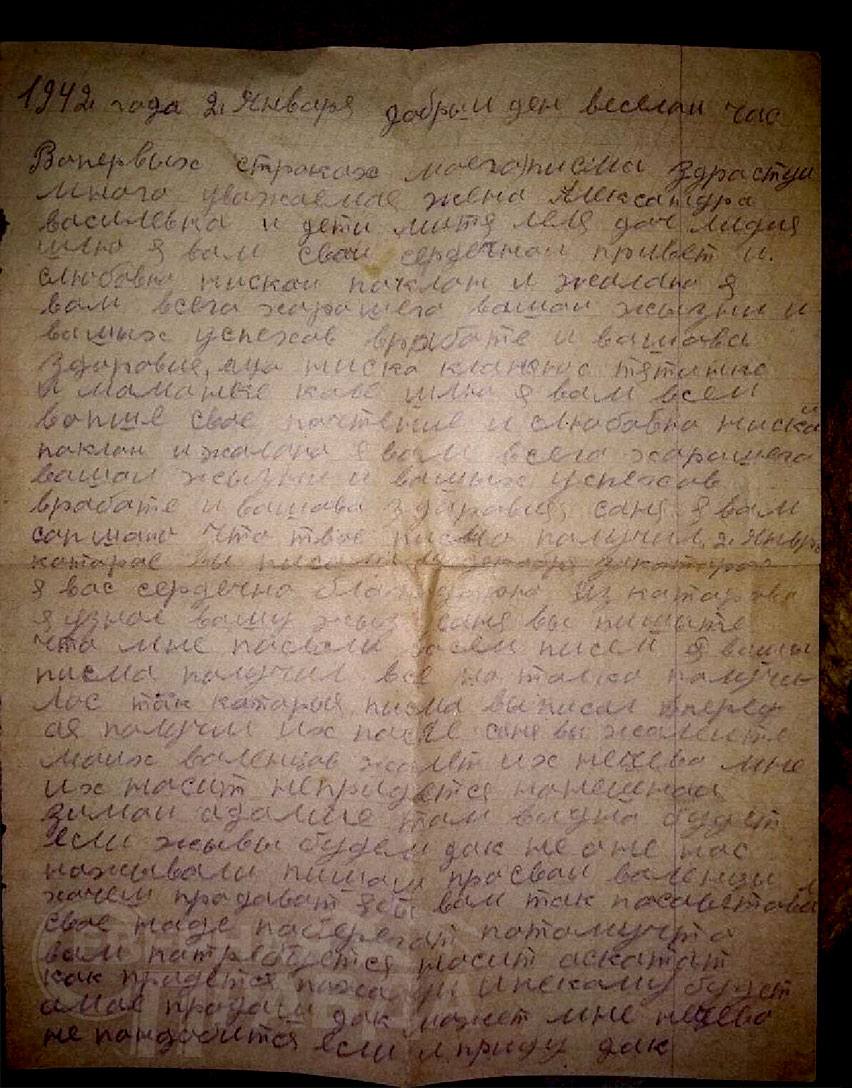 1942 года 2. Января добрыи ден веселаи час
Вапервых строках моего писма здрастуи
много уважаемае жена Александра
василевна и дети митя леля доч лидия
шлю я вам сваи сердечнаи привет и.
слюбовю нискаи паклан и жалаю я
вам всего харашего вашаи жызни и
вашых успехав врабате и вашава
здаровие, ниска кланяюс тятинке
и маманке шлю я вам всем
вапше свае пачтение и слюбовю ниска
паклан и жалаю я вам всего харашего
вашаи жызни и вашых успехав
врабате и вашава здаровия, саня я вам
сапшаю что твае писмо палучил 2. Январ
катарае вы писали декабря закатарае
я вас сердечно благадарю Из катарава
я узнал вашу жыз саня вы пишыте
что мне паслали писем я вашы
писма палучил все но толка палучи
лос так катарыя писма вы писал вперед
ая палучил их после саня вы жалеите
маих валенцав жалет их нечева мне
их насит непридется нонешнаи
зимаи адалше там видно будет
если жывы будем дак не оне нас
нажывали пишыш просваи валенцы
хочеш продават я бы вам так пасаветавал
свае наде паберегат патамучта
вам патребуется насит аскатат
как придется некаму будет
амае продаш дак может мне нечево
не панадобится если и приду дак